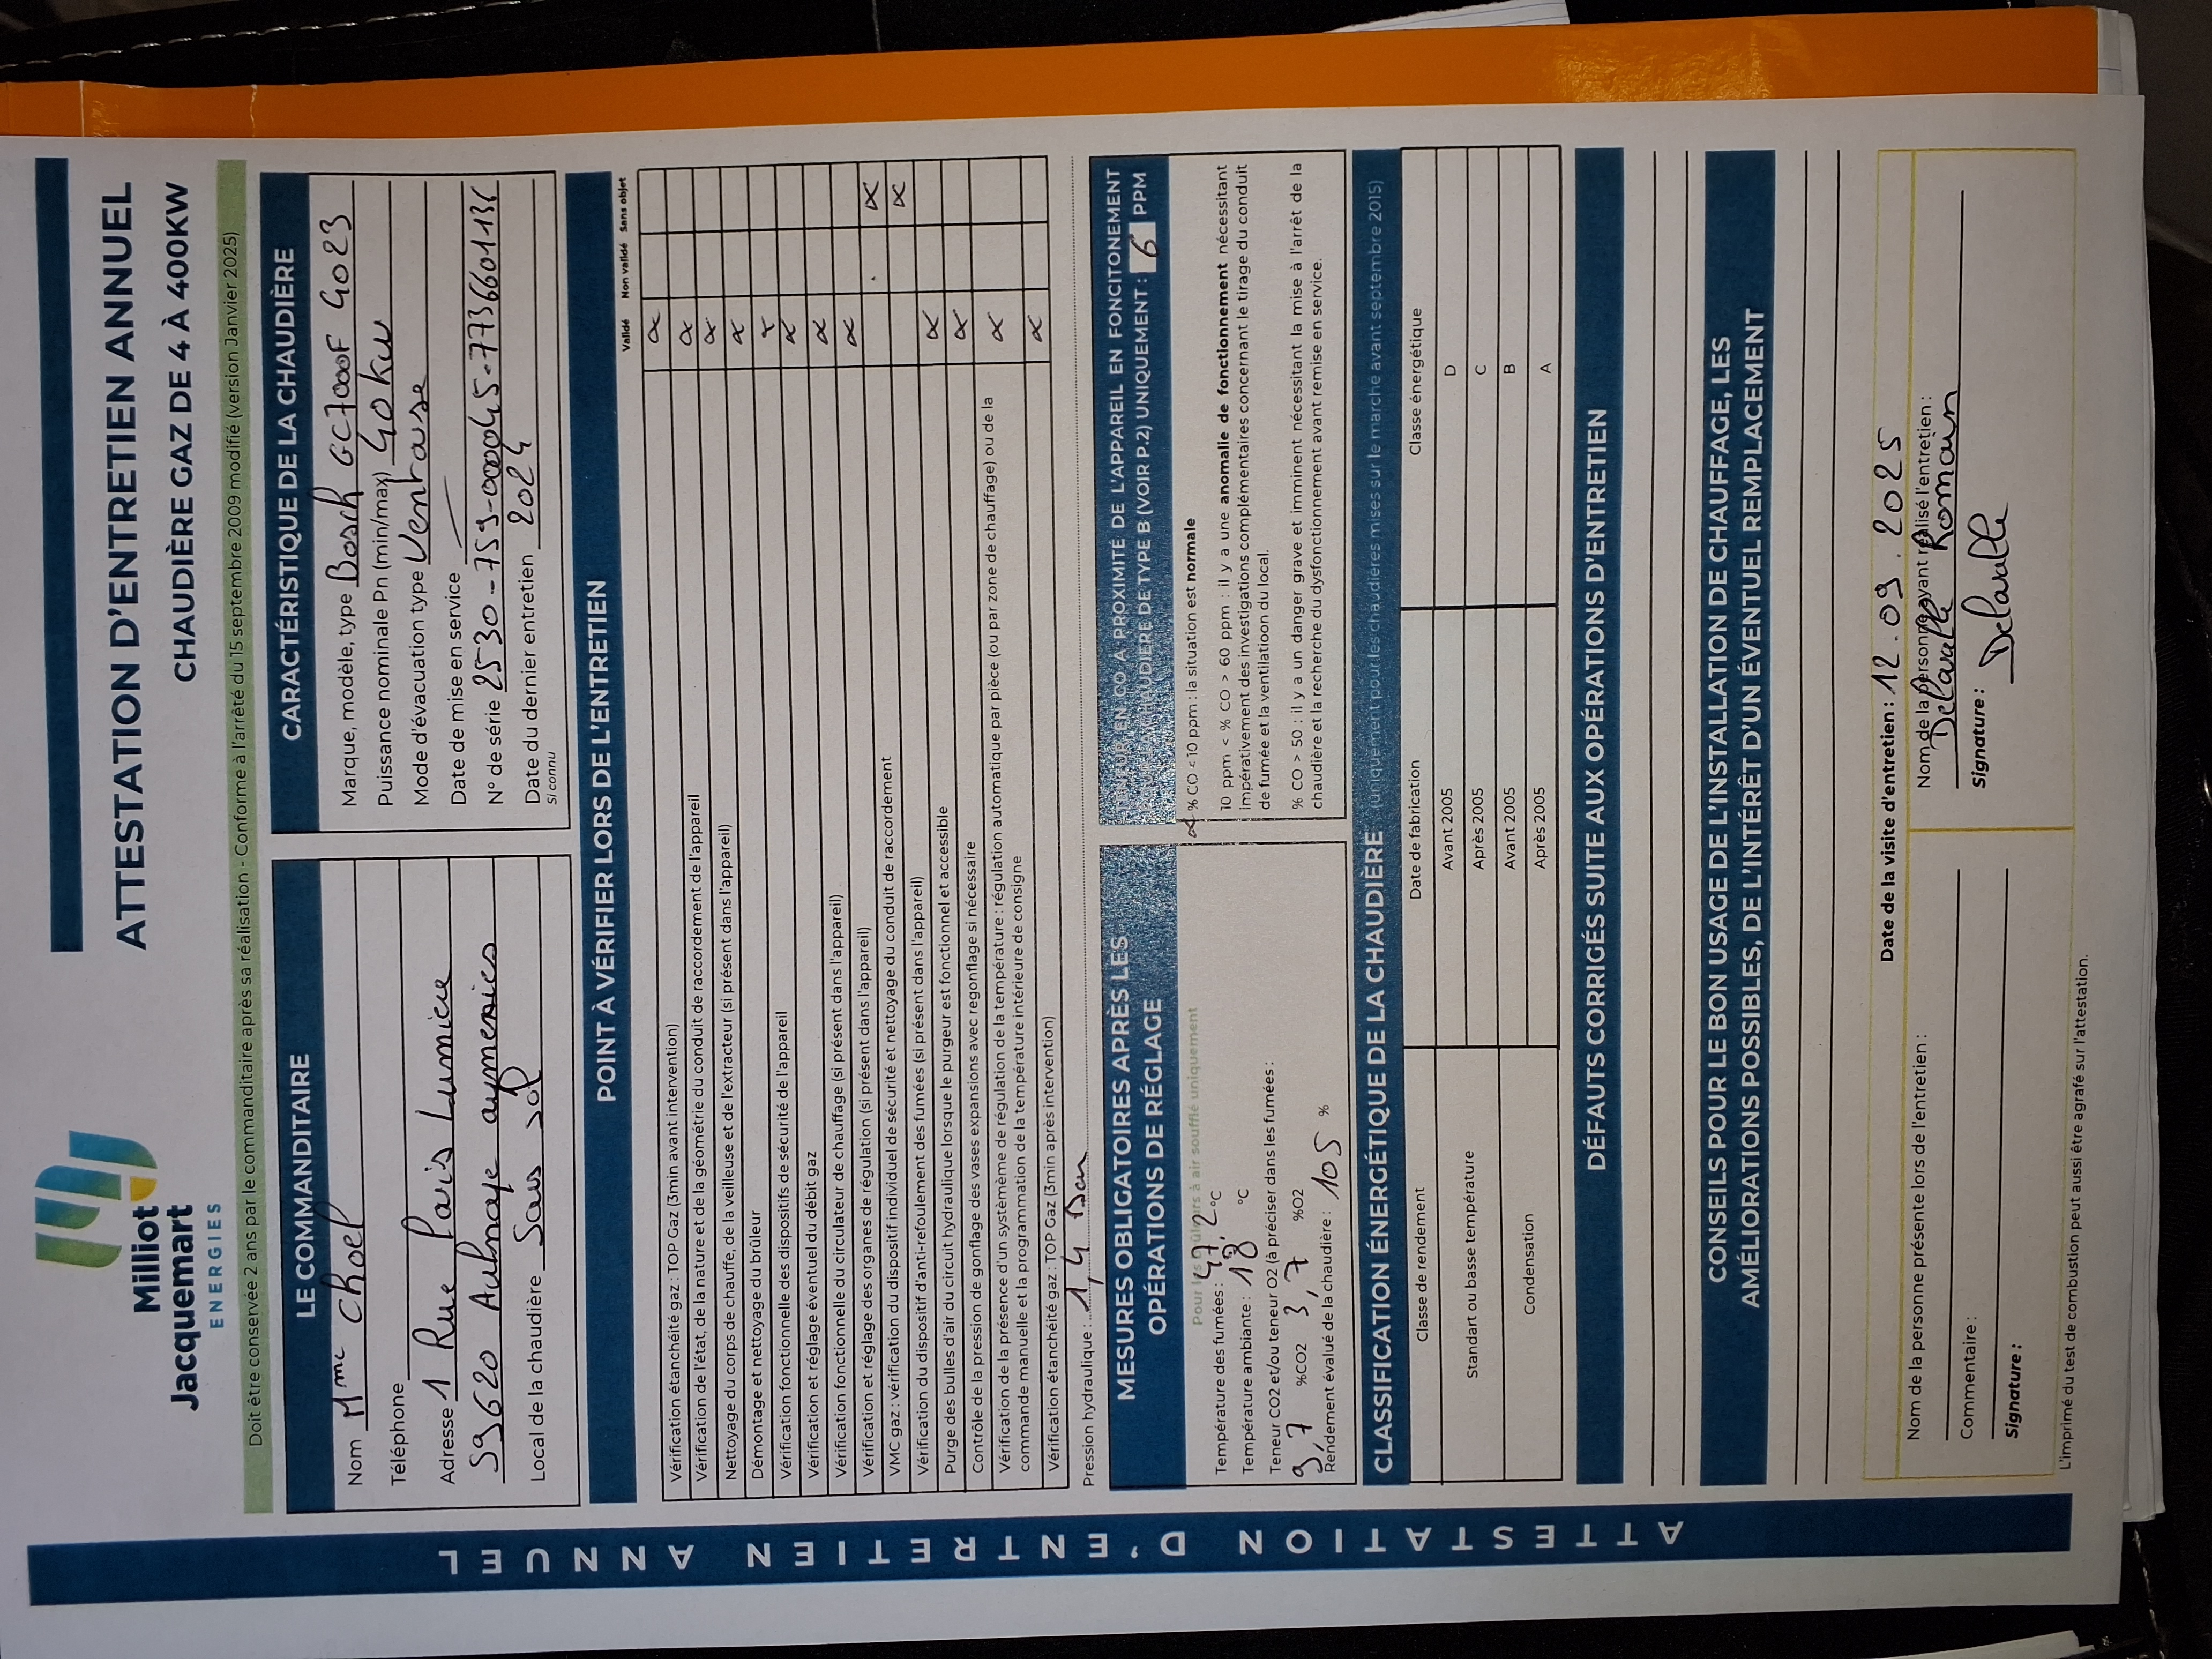 Milliot
Jacquemart
ENERGIES
ATTESTATION D'ENTRETIEN ANNUEL
CHAUDIÈRE GAZ DE 4 À 400KW
Doit être conservée 2 ans par le commanditaire après sa réalisation - Conforme à l'arrêté du 15 septembre 2009 modifié (version Janvier 2025)
LE COMMANDITAIRE
Nom Mme Choel
Téléphone
Adresse 1 Rue Paris Lumiere
59620 Aulnoye aymeries
Local de la chaudière Sous sol
CARACTÉRISTIQUE DE LA CHAUDIÈRE
Marque, modèle, type Bosch GC7000F 4023
Puissance nominale Pn (min/max) 40 kw
Mode d'évacuation type Ventouse
Date de mise en service
N° de série 2530-759-000045-7736601136
Date du dernier entretien 2024
si connu
POINT À VÉRIFIER LORS DE L'ENTRETIEN
Validé Non validé Sans objet
Vérification étanchéité gaz : TOP Gaz (3min avant intervention) x
Vérification de l'état, de la nature et de la géométrie du conduit de raccordement de l'appareil x
Nettoyage du corps de chauffe, de la veilleuse et de l'extracteur (si présent dans l'appareil) x
Démontage et nettoyage du brûleur x
Vérification fonctionnelle des dispositifs de sécurité de l'appareil x
Vérification et réglage éventuel du débit gaz x
Vérification fonctionnelle du circulateur de chauffage (si présent dans l'appareil) x
Vérification et réglage des organes de régulation (si présent dans l'appareil) x
VMC gaz : vérification du dispositif individuel de sécurité et nettoyage du conduit de raccordement x
Vérification du dispositif d'anti-refoulement des fumées (si présent dans l'appareil) x
Purge des bulles d'air du circuit hydraulique lorsque le purgeur est fonctionnel et accessible x
Contrôle de la pression de gonflage des vases expansions avec regonflage si nécessaire x
Vérification de la présence d'un systèmème de régulation de la température : régulation automatique par pièce (ou par zone de chauffage) ou de la
commande manuelle et la programmation de la température intérieure de consigne x
Vérification étanchéité gaz : TOP Gaz (3min après intervention) x
Pression hydraulique : 1,4 bar
MESURES OBLIGATOIRES APRÈS LES
OPÉRATIONS DE RÉGLAGE
Pour les brûleurs à air soufflé uniquement
Température des fumées : 47,2 °C
Température ambiante : 18 °C
Teneur CO2 et/ou teneur O2 (à préciser dans les fumées :
9,7 %CO2 3,7 %O2
Rendement évalué de la chaudière : 105 %
TENEUR EN CO À PROXIMITÉ DE L'APPAREIL EN FONCITONEMENT
POUR CHAUDIÈRE DE TYPE B (VOIR P.2) UNIQUEMENT : 6 PPM
x % CO < 10 ppm : la situation est normale
10 ppm < % CO > 60 ppm : il y a une anomalie de fonctionnement nécessitant
impérativement des investigations complémentaires concernant le tirage du conduit
de fumée et la ventilatioon du local.
% CO > 50 : il y a un danger grave et imminent nécessitant la mise à l'arrêt de la
chaudière et la recherche du dysfonctionnement avant remise en service.
CLASSIFICATION ÉNERGÉTIQUE DE LA CHAUDIÈRE (uniquement pour les chaudières mises sur le marché avant septembre 2015)
Classe de rendement Date de fabrication Classe énergétique
Standart ou basse température Avant 2005 D
Après 2005 C
Condensation Avant 2005 B
Après 2005 A
DÉFAUTS CORRIGÉS SUITE AUX OPÉRATIONS D'ENTRETIEN
CONSEILS POUR LE BON USAGE DE L'INSTALLATION DE CHAUFFAGE, LES
AMÉLIORATIONS POSSIBLES, DE L'INTÉRÊT D'UN ÉVENTUEL REMPLACEMENT
Date de la visite d'entretien : 12.09.2025
Nom de la personne présente lors de l'entretien :
Commentaire :
Signature :
Nom de la personne ayant réalisé l'entretien :
Delavalle Romain
Signature : Delavalle
L'imprimé du test de combustion peut aussi être agrafé sur l'attestation.
ATTESTATION D'ENTRETIEN ANNUEL